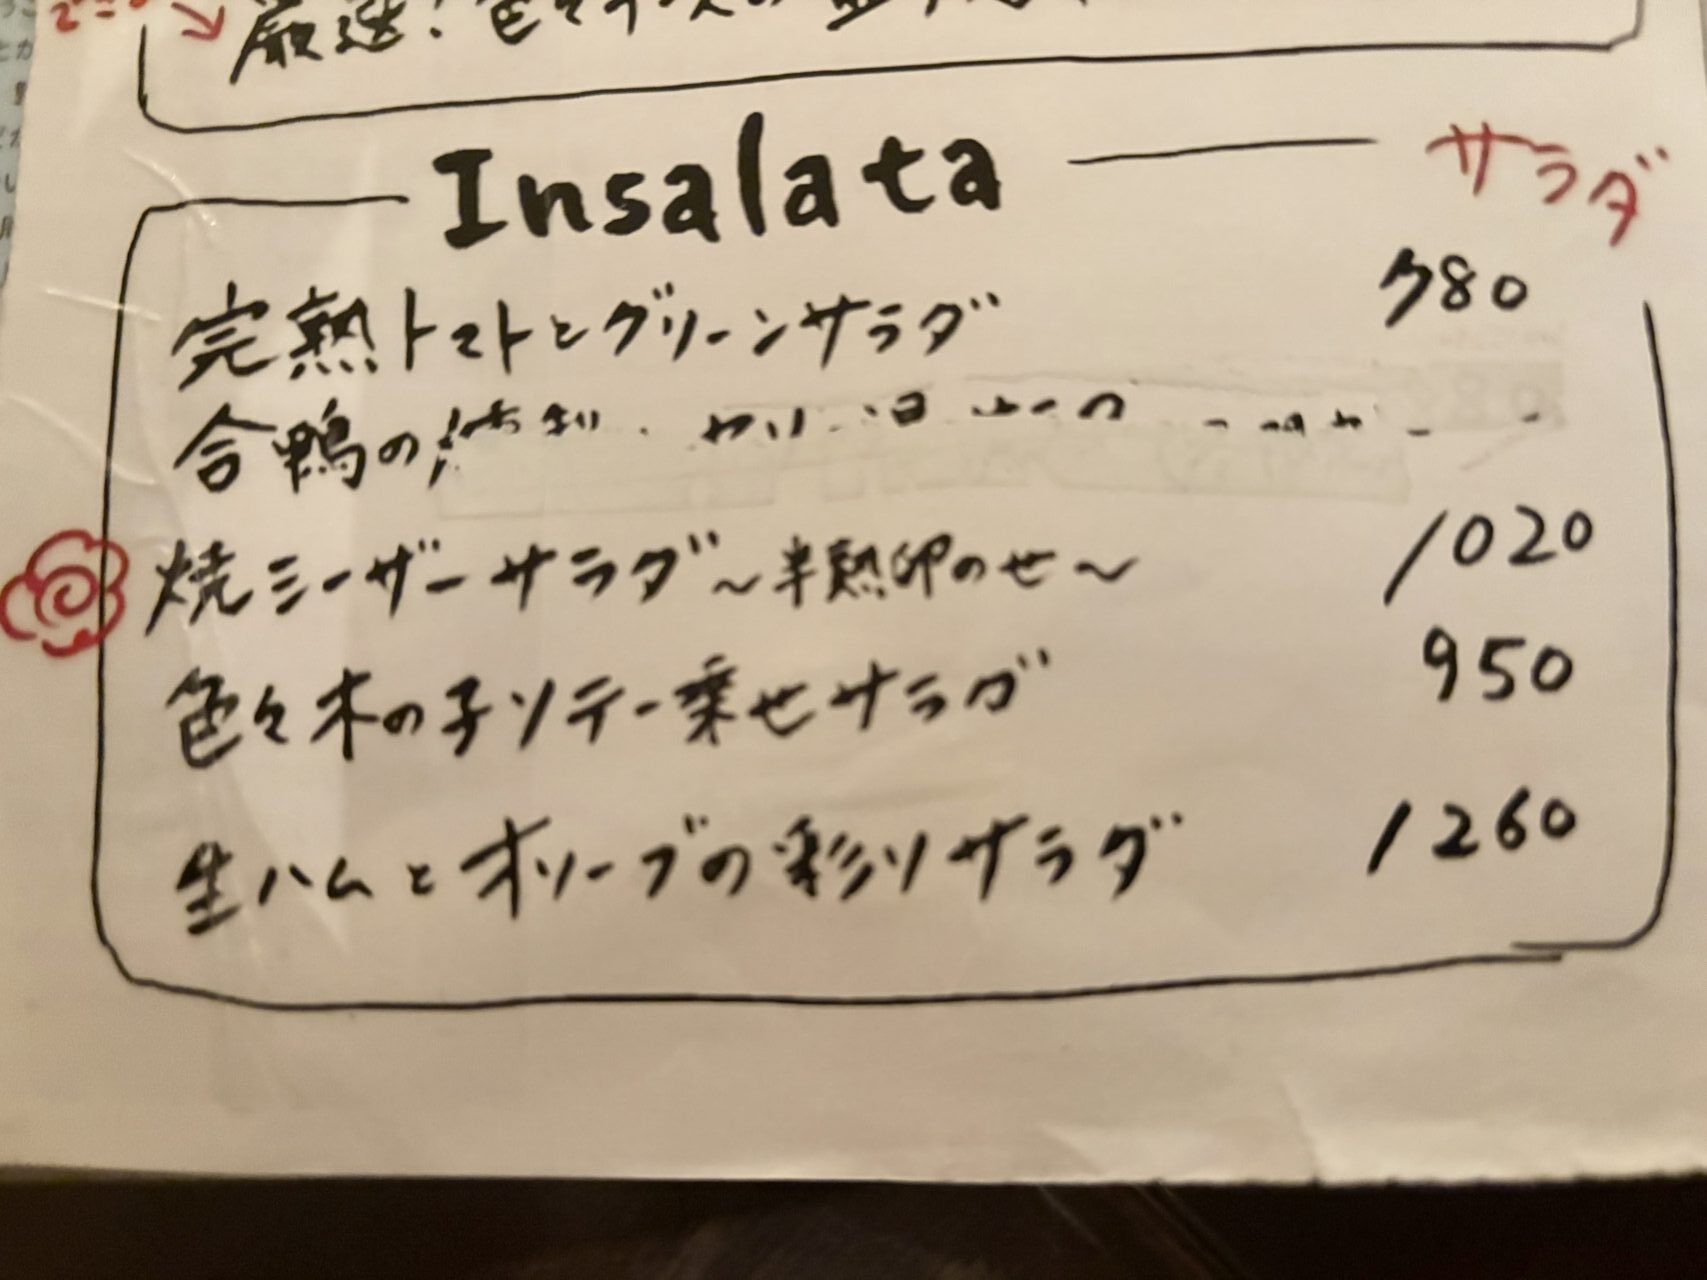 厳選!色々
Insalata
サラダ
完熟トマトとグリーンサラダ 780
合鴨の
焼シーザーサラダ～半熟卵のせ～ 1020
色々木の子ソテー乗せサラダ 950
生ハムとオリーブの彩りサラダ 1260